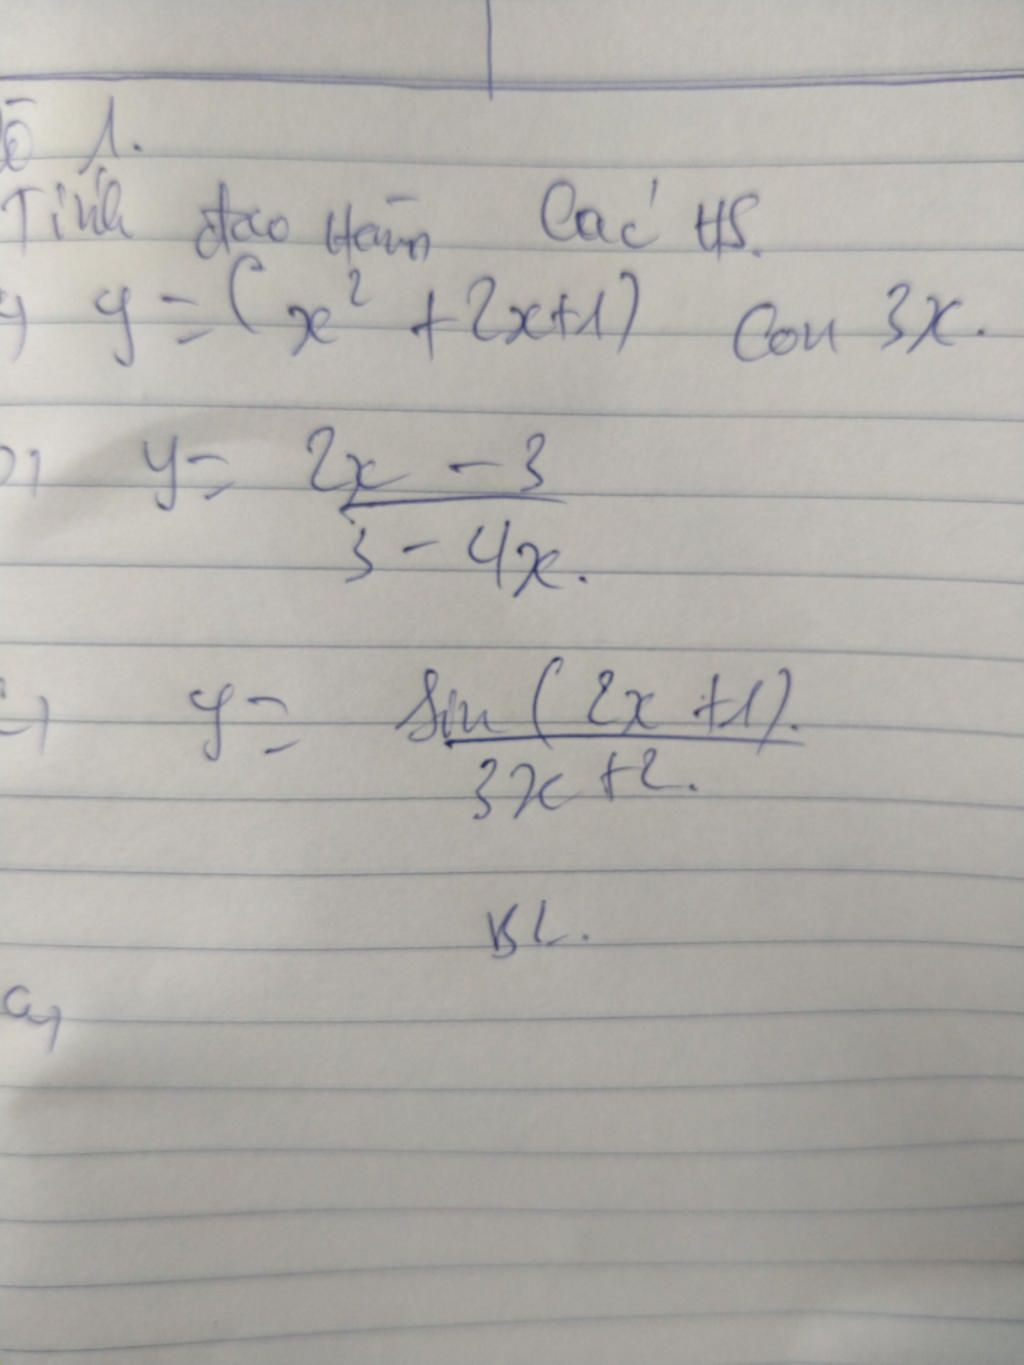 1.
Tính đạo Hàm Các HS.
y = (x² + 2x+1) cos 3x.
y = \frac{2x - 3}{3 - 4x}.
y = \frac{sin(2x+1).}{3x+2.}
BL.
a,